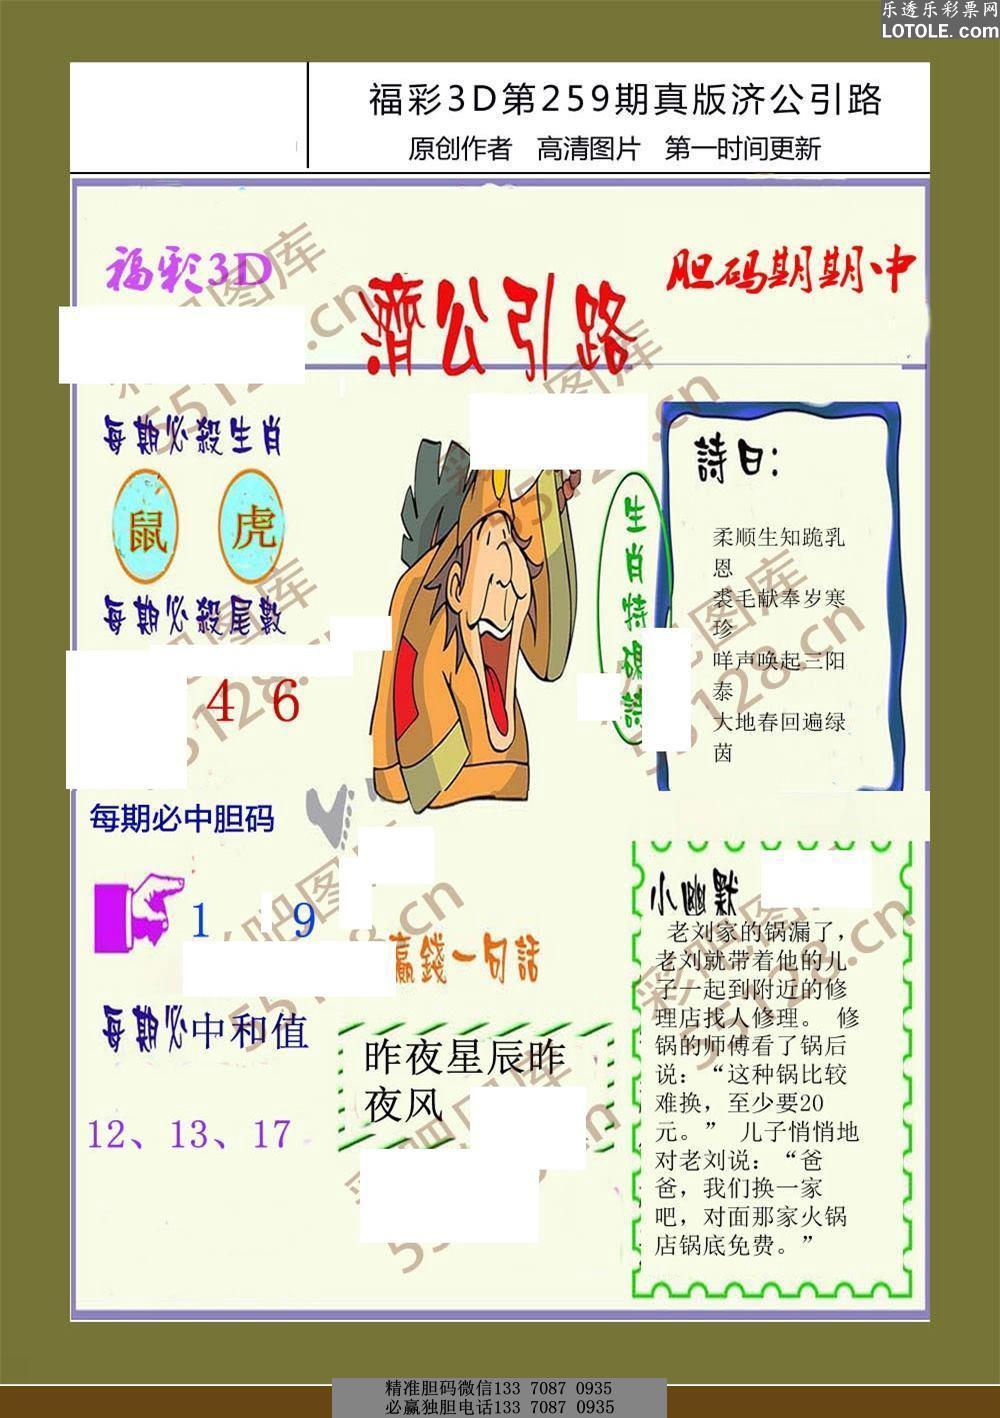 乐透乐彩票网
LOTOLE.com
福彩3D第259期真版济公引路
原创作者 高清图片 第一时间更新
福彩3D
濟公引路
胆码期期中
每期必殺生肖
鼠 虎
每期必殺尾數
4 6
每期必中胆码
1 9
每期必中和值
12、13、17
生肖特碼詩
詩曰:
柔顺生知跪乳
恩
裘毛献奉岁寒
珍
咩声唤起三阳
泰
大地春回遍绿
茵
赢錢一句話
昨夜星辰昨
夜风
小幽默
老刘家的锅漏了，
老刘就带着他的儿
子一起到附近的修
理店找人修理。 修
锅的师傅看了锅后
说：“这种锅比较
难换，至少要20
元。” 儿子悄悄地
对老刘说：“爸
爸，我们换一家
吧，对面那家火锅
店锅底免费。”
彩吧图库
55128.cn
精准胆码微信133 7087 0935
必赢独胆电话133 7087 0935